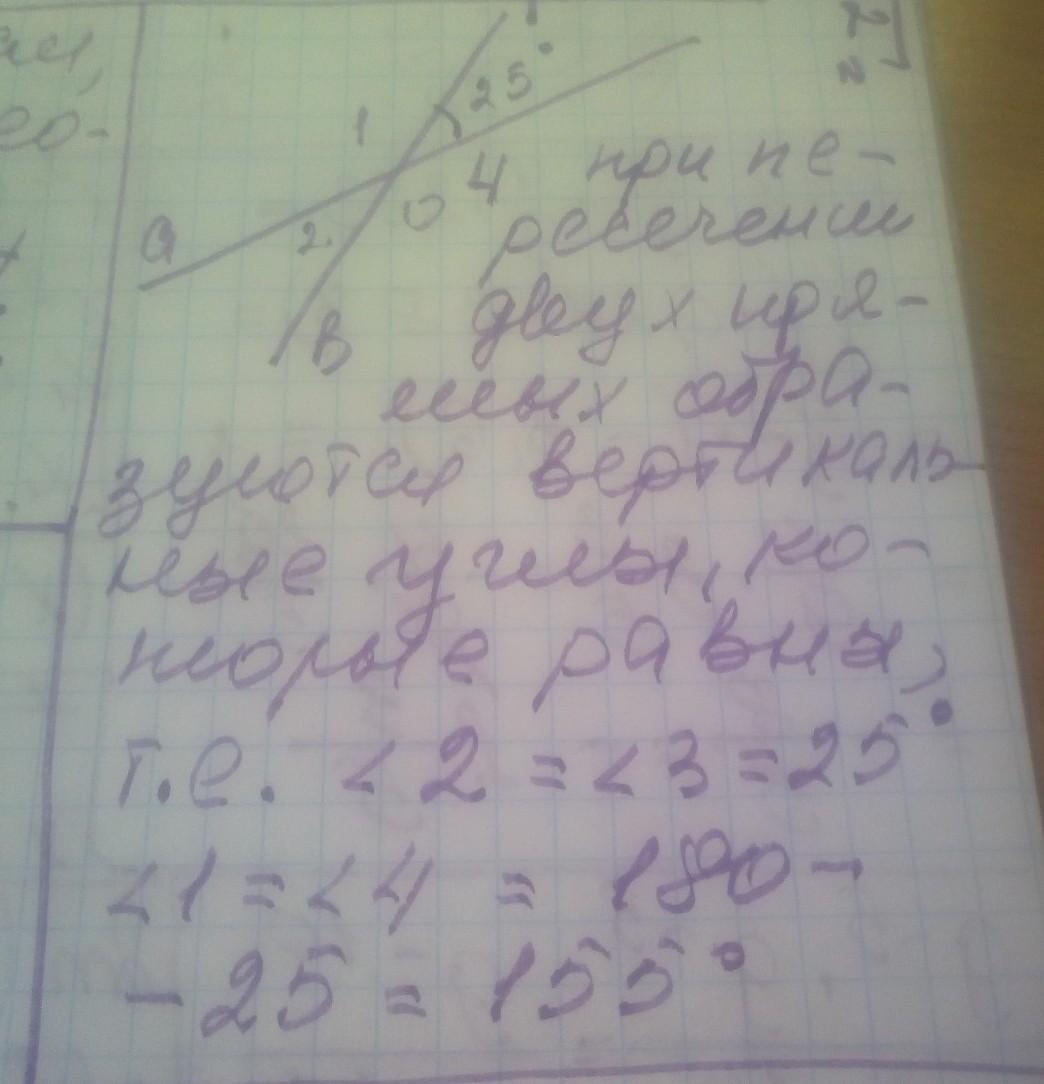 ая,
ео-
1
25°
4
О
2
а
в
при пе-
ресечении
двух пря-
мых обра-
зуются вертикаль-
ные углы, ко-
торые равны,
т.е. < 2 = < 3 = 25°
< 1 = < 4 = 180 -
- 25 = 155°